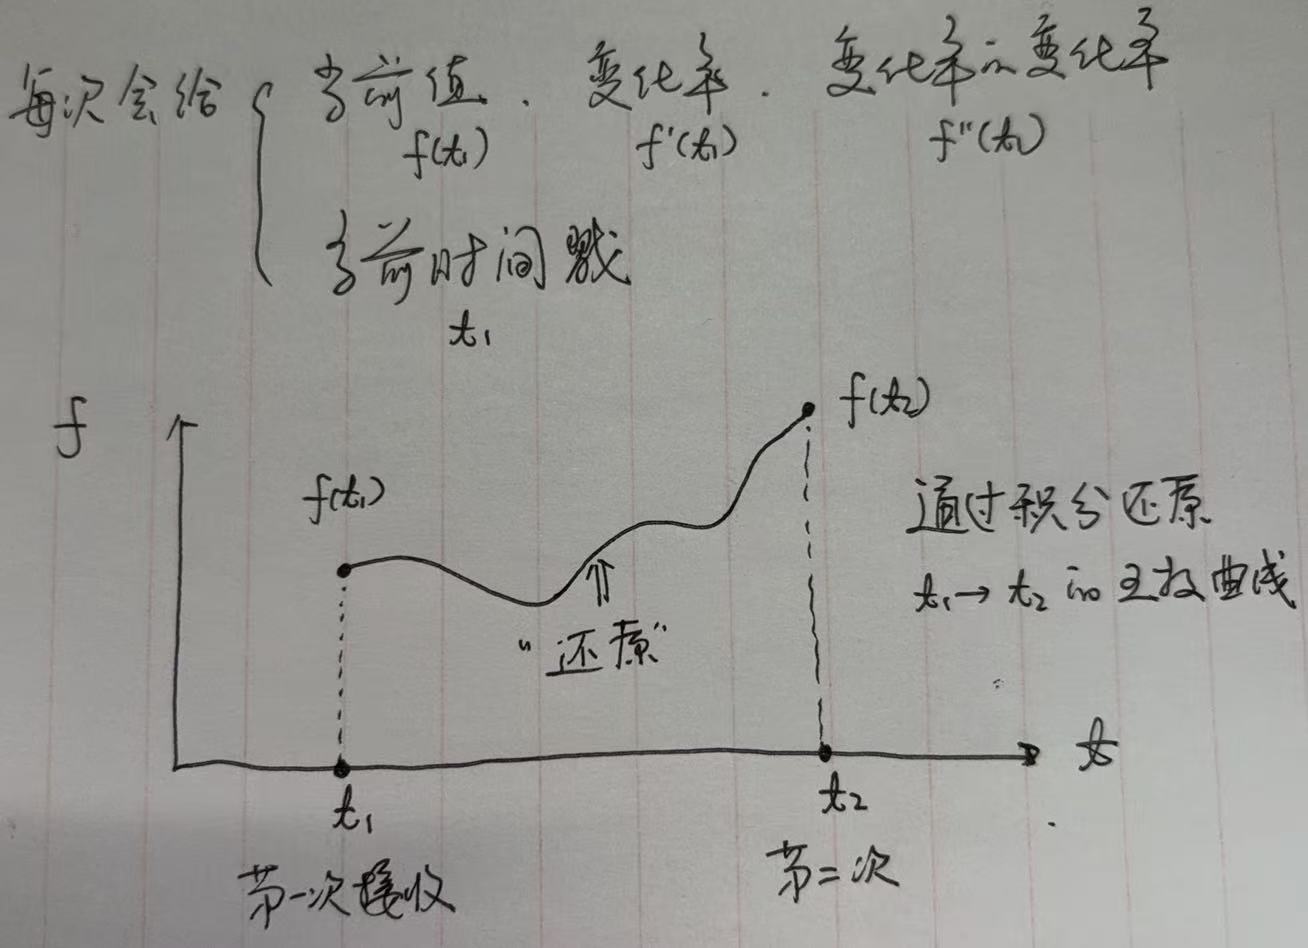 每次会给 { 当前值. 变化率. 变化率的变化率
f(t₁) f'(t₁) f''(t₁)
当前时间戳
t₁
f
f(t₂)
f(t₁)
通过积分还原
t₁→t₂ 的主技曲线
"还原"
t
t₁
t₂
第一次接收
第二次